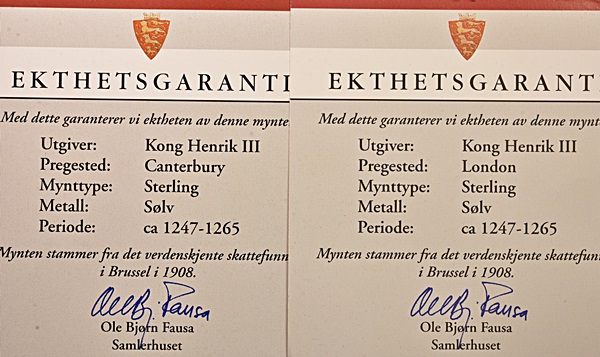 EKTHETSGARANTI
Med dette garanterer vi ektheten av denne mynte
Utgiver: Kong Henrik III
Pregested: Canterbury
Mynttype: Sterling
Metall: Sølv
Periode: ca 1247-1265
Mynten stammer fra det verdenskjente skattefunn
i Brussel i 1908.
Ole Bjørn Fausa
Samlerhuset
EKTHETSGARANT
Med dette garanterer vi ektheten av denne mynt
Utgiver: Kong Henrik III
Pregested: London
Mynttype: Sterling
Metall: Sølv
Periode: ca 1247-1265
Mynten stammer fra det verdenskjente skattefun
i Brussel i 1908.
Ole Bjørn Fausa
Samlerhuset